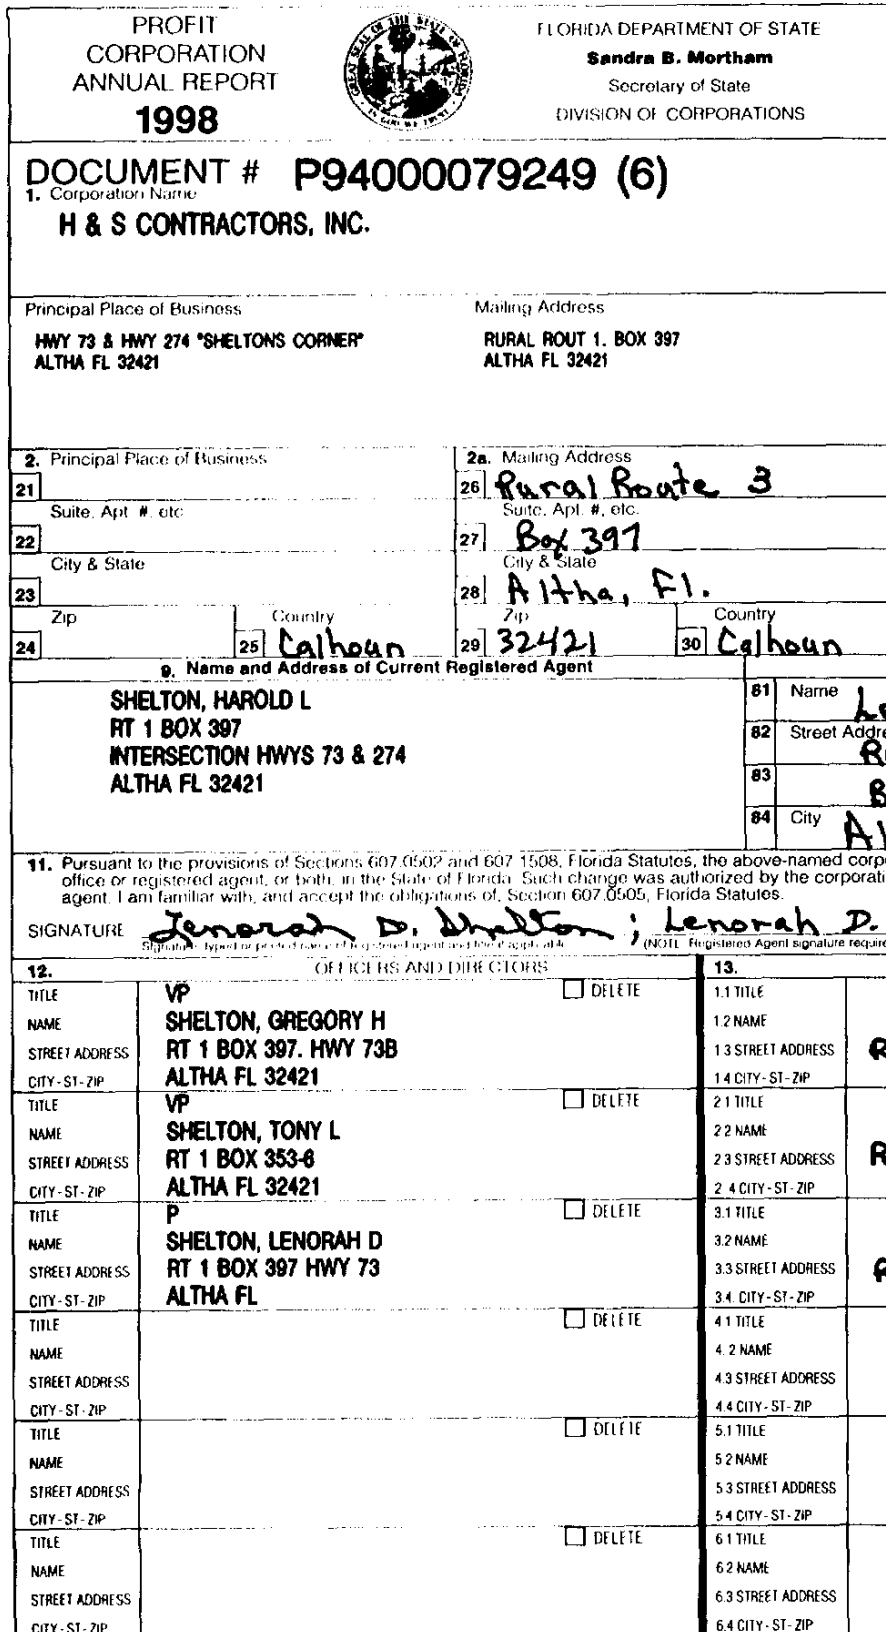 PROFIT
CORPORATION
ANNUAL REPORT
1998
FLORIDA DEPARTMENT OF STATE
Sandra B. Mortham
Secretary of State
DIVISION OF CORPORATIONS
DOCUMENT # P94000079249 (6)
1. Corporation Name
H & S CONTRACTORS, INC.
Principal Place of Business
HWY 73 & HWY 274 "SHELTONS CORNER"
ALTHA FL 32421
Mailing Address
RURAL ROUT 1. BOX 397
ALTHA FL 32421
2. Principal Place of Business
21
Suite, Apt #, etc
22
City & State
23
Zip
24
Country
25 Calhoun
2a. Mailing Address
26 Rural Route 3
Suite, Apt. #, etc.
27 Box 397
City & State
28 Altha, Fl.
Zip
29 32421
Country
30 Calhoun
9. Name and Address of Current Registered Agent
SHELTON, HAROLD L
RT 1 BOX 397
INTERSECTION HWYS 73 & 274
ALTHA FL 32421
81 Name
82 Street Addre
83
84 City
11. Pursuant to the provisions of Sections 607.0502 and 607 1508, Florida Statutes, the above-named corp
office or registered agent, or both, in the State of Florida. Such change was authorized by the corporati
agent. I am familiar with, and accept the obligations of, Section 607.0505, Florida Statutes.
SIGNATURE Lenorah D. Shelton ; Lenorah D.
Signature, typed or printed name of registered agent and title if applicable (NOTE Registered Agent signature require
12. OFFICERS AND DIRECTORS
TITLE VP DELETE
NAME SHELTON, GREGORY H
STREET ADDRESS RT 1 BOX 397. HWY 73B
CITY-ST-ZIP ALTHA FL 32421
TITLE VP DELETE
NAME SHELTON, TONY L
STREET ADDRESS RT 1 BOX 353-6
CITY-ST-ZIP ALTHA FL 32421
TITLE P DELETE
NAME SHELTON, LENORAH D
STREET ADDRESS RT 1 BOX 397 HWY 73
CITY-ST-ZIP ALTHA FL
TITLE DELETE
NAME
STREET ADDRESS
CITY-ST-ZIP
TITLE DELETE
NAME
STREET ADDRESS
CITY-ST-ZIP
TITLE DELETE
NAME
STREET ADDRESS
CITY-ST-ZIP
13.
1.1 TITLE
1.2 NAME
1 3 STREET ADDRESS
1 4 CITY-ST-ZIP
2 1 TITLE
2 2 NAME
2 3 STREET ADDRESS
2 4 CITY-ST-ZIP
3.1 TITLE
3.2 NAME
3.3 STREET ADDRESS
3.4. CITY-ST-ZIP
4 1 TITLE
4. 2 NAME
4.3 STREET ADDRESS
4.4 CITY-ST-ZIP
5.1 TITLE
5 2 NAME
5 3 STREET ADDRESS
5 4 CITY-ST-ZIP
6 1 TITLE
6 2 NAME
6.3 STREET ADDRESS
6.4 CITY-ST-ZIP